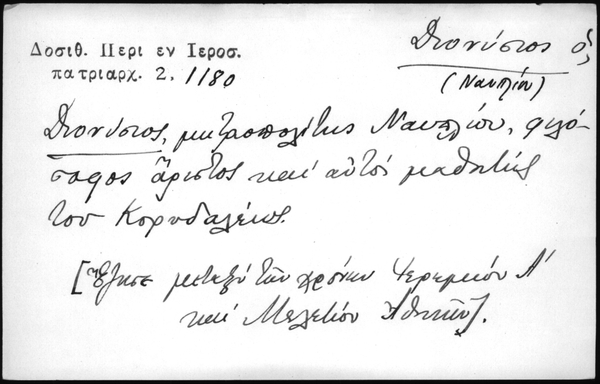 Δοσιθ. Περι εν Ιεροσ.
πατριαρχ. 2, 1180
Διονύσιος ὁ
(Ναυπλίου)
Διονύσιος, μητροπολίτης Ναυπλίου, φιλό-
σοφος ἄριστος καὶ αὐτὸς μαθητὴς
τοῦ Κορυδαλέως.
[Ἔζησε μεταξὺ τῶν χρόνων Ἱερεμίου Α'
καὶ Μελετίου Ἀθηνῶν].